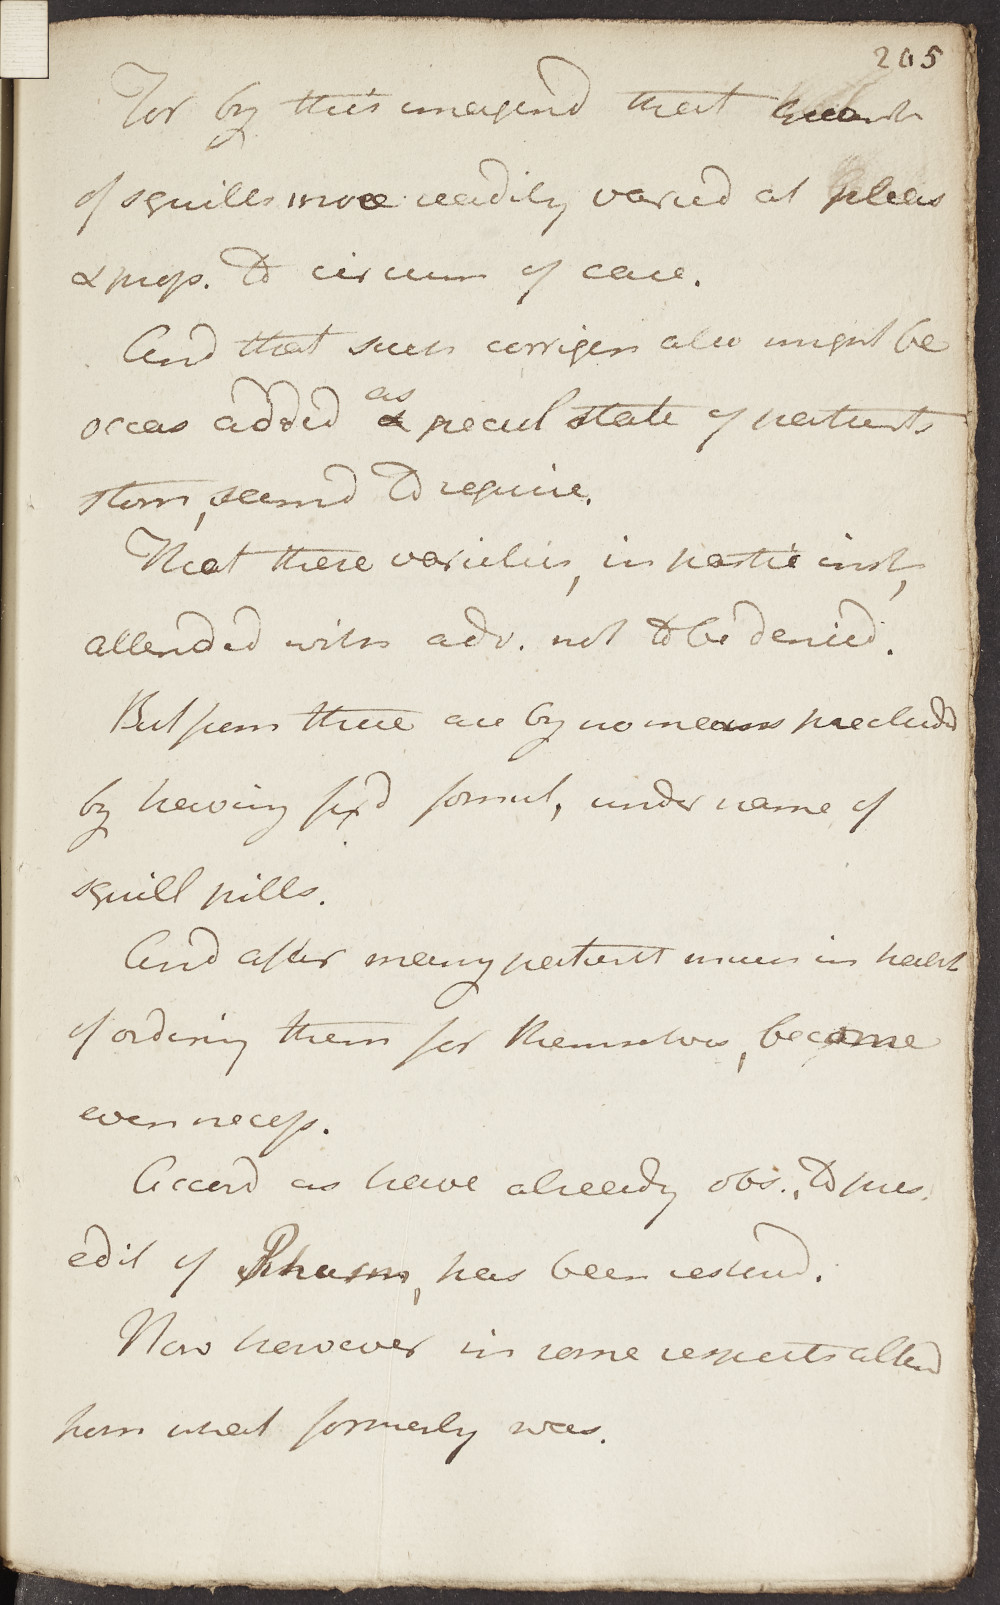 205
For by this imagined that quant
of squills more readily varied at pleas
& prop. to circum of case.
And that such corrigen also might be
occas added as pecul state of patients
stom, seemd to require.
That these varieties, in partic inst,
attended with adv. not to be denied.
But from these are by no means precluded
by having fixd formul, under name of
squill pills.
And after many patients in habit
of ordering them for themselves, become
even necess.
Accord as have already obs., to pres.
edit of Pharm, has been restord.
Now however in some respects alterd
from what formerly was.